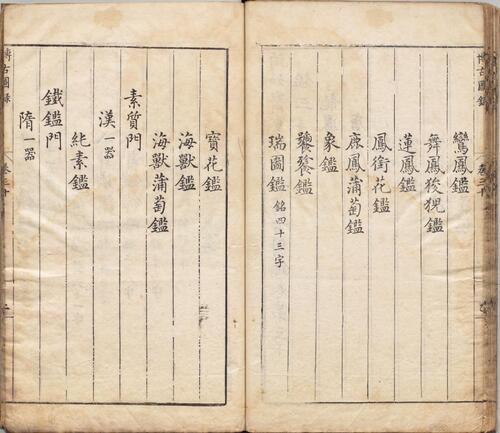 鸞鳳鑑
舞鳳狻猊鑑
蓮鳳鑑
鳳銜花鑑
麻鳳蒲萄鑑
象鑑
饕餮鑑
瑞圖鑑 銘四十三字
寶花鑑
海獸鑑
海獸蒲萄鑑
素質門
漢一器
純素鑑
鐵鑑門
隋一器
博古圖錄